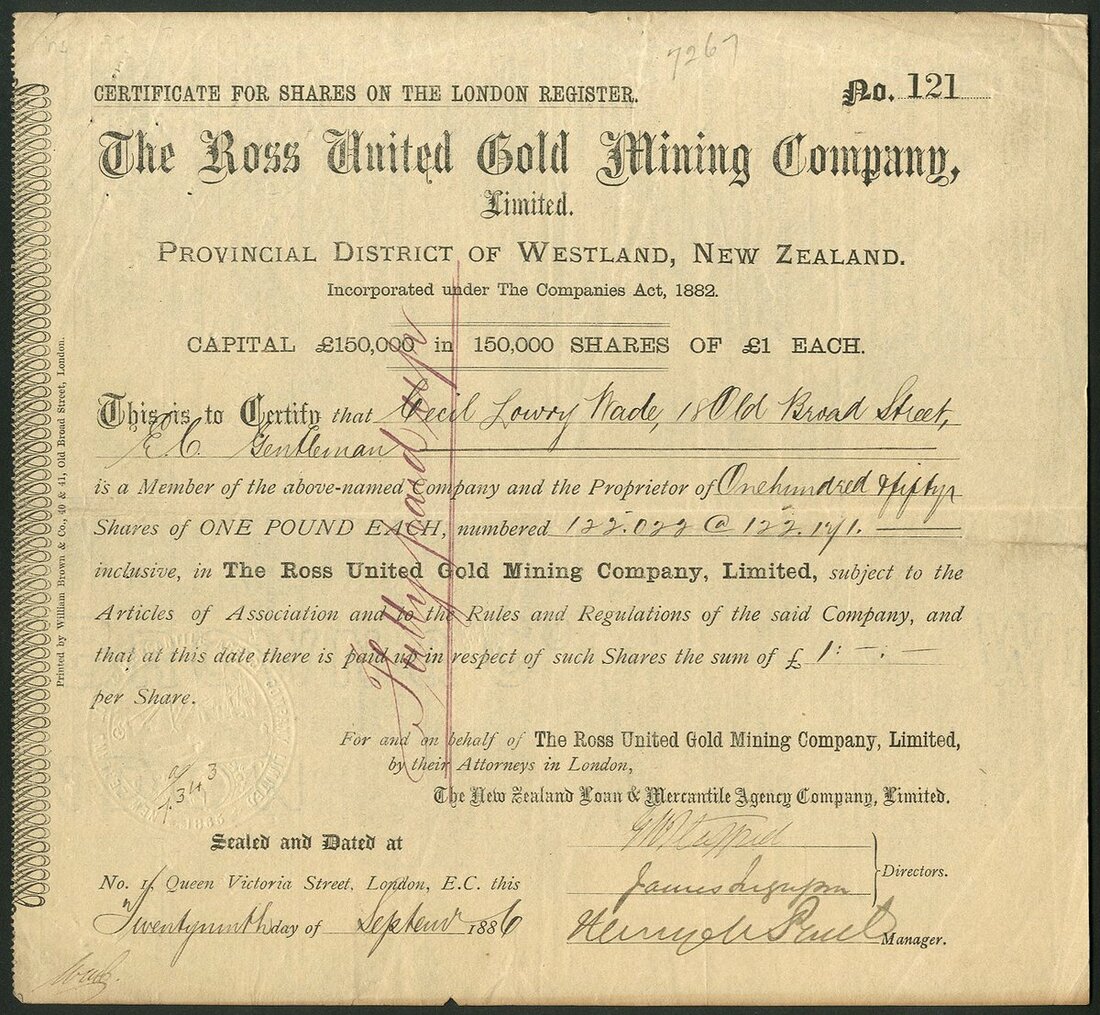 7267
CERTIFICATE FOR SHARES ON THE LONDON REGISTER.
No. 121
The Ross United Gold Mining Company,
Limited.
PROVINCIAL DISTRICT OF WESTLAND, NEW ZEALAND.
Incorporated under The Companies Act, 1882.
CAPITAL £150,000 in 150,000 SHARES OF £1 EACH.
This is to Certify that Cecil Lowry Wade, 18 Old Broad Street,
E.C. Gentleman
is a Member of the above-named Company and the Proprietor of One hundred & fifty
Shares of ONE POUND EACH, numbered 122.022 @ 122.171.
inclusive, in The Ross United Gold Mining Company, Limited, subject to the
Articles of Association and to the Rules and Regulations of the said Company, and
that at this date there is paid up in respect of such Shares the sum of £ 1: - : -
per Share.
Fully paid up
For and on behalf of The Ross United Gold Mining Company, Limited,
by their Attorneys in London,
The New Zealand Loan & Mercantile Agency Company, Limited.
Sealed and Dated at
No. 1, Queen Victoria Street, London, E.C. this
Twentyninth day of Septemr 1886
James
Directors.
Henry
Manager.
Printed by William Brown & Co., 40 & 41, Old Broad Street, London.